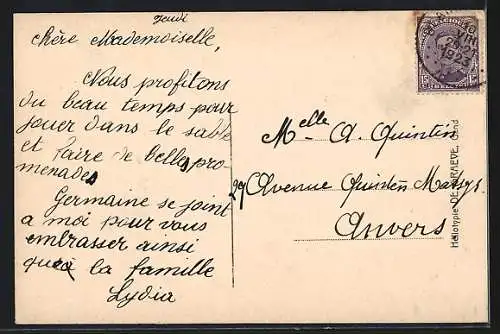 Jeudi
Chère Mademoiselle,
Nous profitons
du beau temps pour
jouer dans le sable
et faire de belles pro
menades
Germaine se joint
a moi pour vous
embrasser ainsi
la famille
Lydia
Melle A. Quintin
29 Avenue Quinten Matsys
Anvers
Héliotypie DE GRAEVE, Gand
15 15